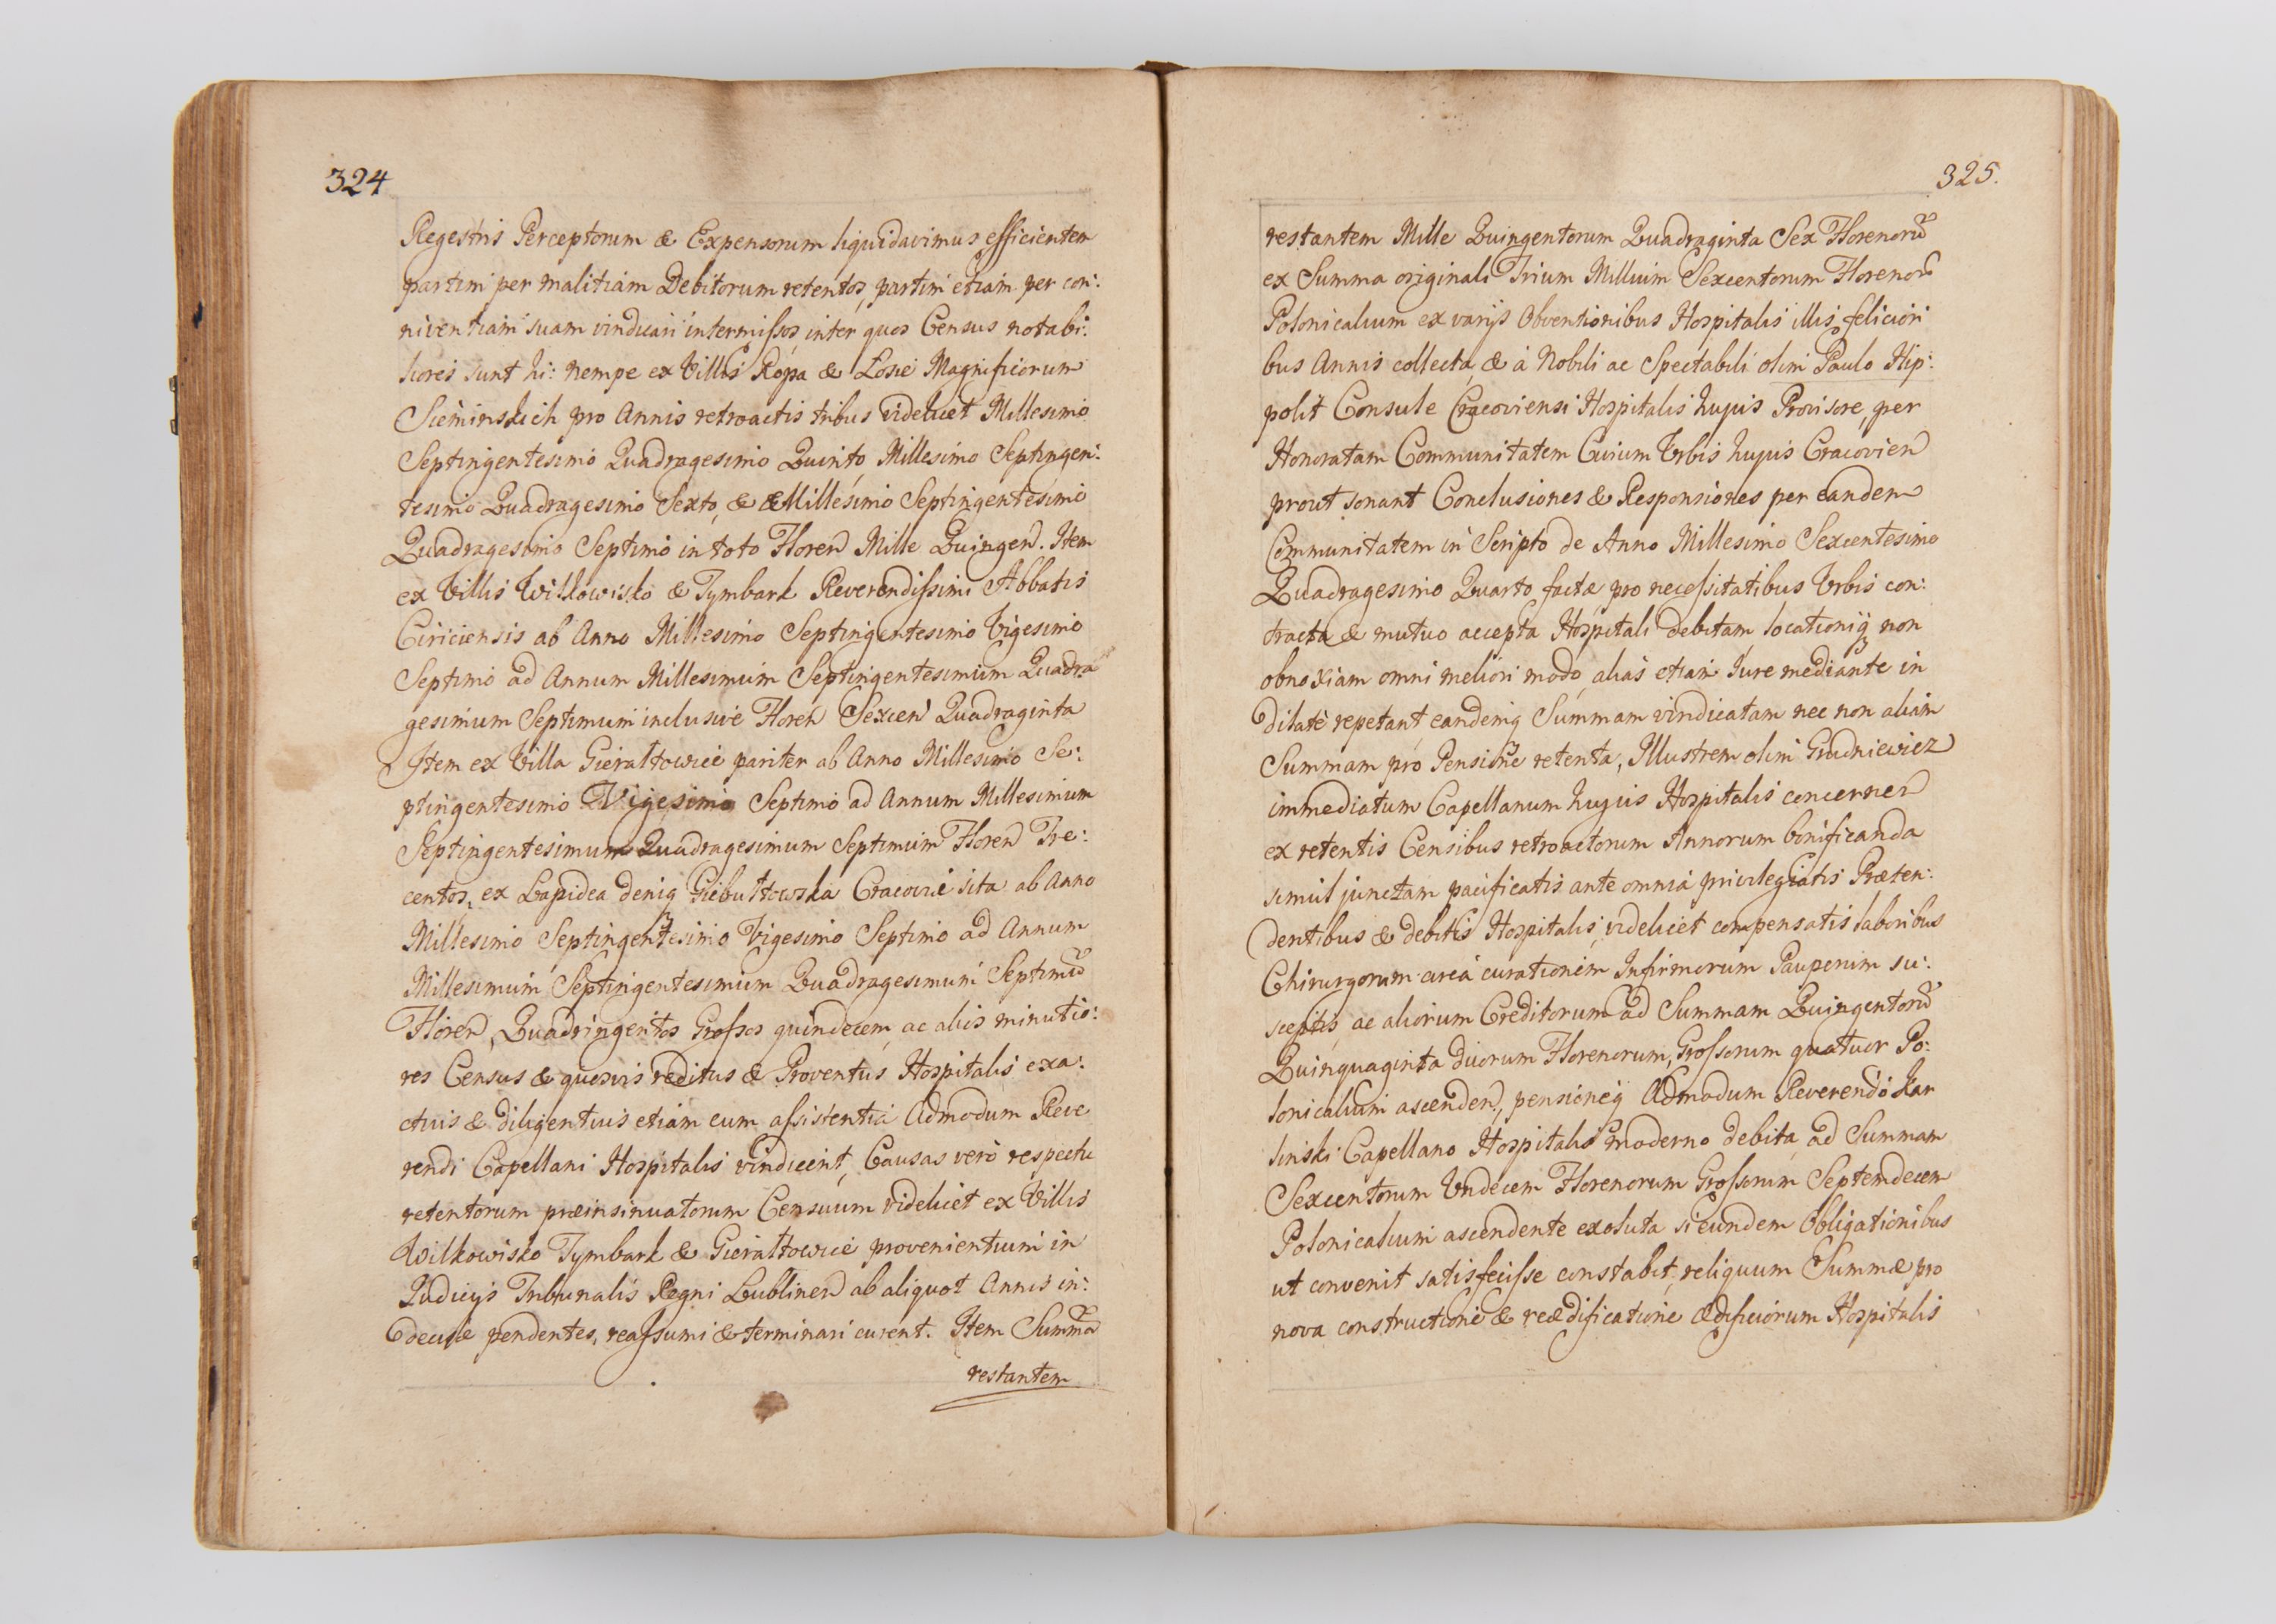 324
Regestris Perceptorum & Expensorum liquidavimus efficientem
partim per malitiam Debitorum retentos, partim etiam per con:
niventiam suam vindicari intermissos, inter quos Census notabi:
liores sunt hi: nempe ex Villis Ropa & Łosie Magnificorum
Sieminskich pro Annis retroactis tribus videlicet Millesimo
Septingentesimo Quadragesimo Quinto, Millesimo Septingen:
tesimo Quadragesimo Sexto, & & Millesimo Septingentesimo
Quadragesimo Septimo in toto Floren Mille Quingen. Item
ex Villis Wilkowisko & Tymbark Reverendissimi Abbatis
Ciriciensis ab Anno Millesimo Septingentesimo Vigesimo
Septimo ad Annum Millesimum Septingentesimum Quadra
gesimum Septimum inclusive Floren Sexcen Quadraginta
Item ex Villa Gierałtowice pariter ab Anno Millesimo Se:
ptingentesimo Vigesimo Septimo ad Annum Millesimum
Septingentesimum Quadragesimum Septimum Floren Tre:
centos, ex Lapidea deniq Giebułtowska Cracoviæ sita ab Anno
Millesimo Septingentesimo Vigesimo Septimo ad Annum
Millesimum Septingentesimum Quadragesimum Septimũ
Floren, Quadringentos Grossos quindecem, ac alios minutio:
res Census & quosvis reditus & Proventus Hospitalis exa:
ctius & diligentius etiam cum assistentia Admodum Reve
rendi Capellani Hospitalis vindicent, Causas verò respectu
retentorum præinsinuatorum Censuum videlicet ex Villis
Wilkowisko Tymbark & Gierałtowice provenientium in
Judicijs Tribunalis Regni Lublinen ab aliquot Annis in:
decisæ pendentes, reassumi & terminari curent. Item Summã
restantem
325.
restantem Mille Quingentorum Quadraginta Sex Florenorũ
ex Summa originali Trium Millium Sexcentorum Florenorũ
Polonicalium ex varijs Obventionibus Hospitalis illis feliciori
bus Annis collecta, & à Nobili ac Spectabili olim Paulo Hip:
polit Consule Cracoviensi Hospitalis hujus Provisore, per
Honoratam Communitatem Civium Urbis hujus Cracovien
prout sonant Conclusiones & Responsiones per eandem
Communitatem in Scripto de Anno Millesimo Sexcentesimo
Quadragesimo Quarto factæ pro necessitatibus Urbis con:
tracta & mutuo accepta Hospitali debitam, locationiq non
obnoxiam omni meliori modo, aliàs etiam Jure mediante in
dilatè repetant, eandemq Summam vindicatam nec non aliam
Summam pro Pensione retenta, Illustrem olim Grudniewicz
immediatum Capellanum hujus Hospitalis concernen
ex retentis Censibus retroactorum Annorum bonificanda
simul junctam pacificatis ante omnia privilegiatis Præten:
dentibus & debitis Hospitalis, videlicet compensatis laboribus
Chirurgorum circà curationem Infirmorum Pauperum su:
sceptis, ac aliorum Creditorum ad Summam Quingentorũ
Quinquaginta duorum Florenorum, Grossorum quatuor Po:
lonicalium ascenden, pensioneq Admodum Reverendo Kar
linski Capellano Hospitalis moderno debita, ad Summam
Sexcentorum Undecem Florenorum Grossorum Septemdecem
Polonicalium ascendente exoluta, si eundem Obligationibus
ut convenit satisfecisse constabit, reliquum Summæ pro
nova constructione & reædificatione ædificiorum Hospitalis